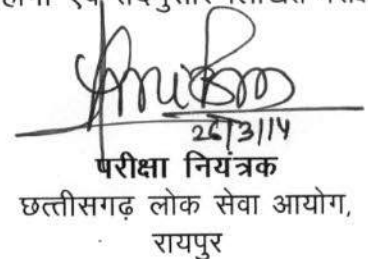 26/3/14
परीक्षा नियंत्रक
छत्तीसगढ़ लोक सेवा आयोग,
रायपुर